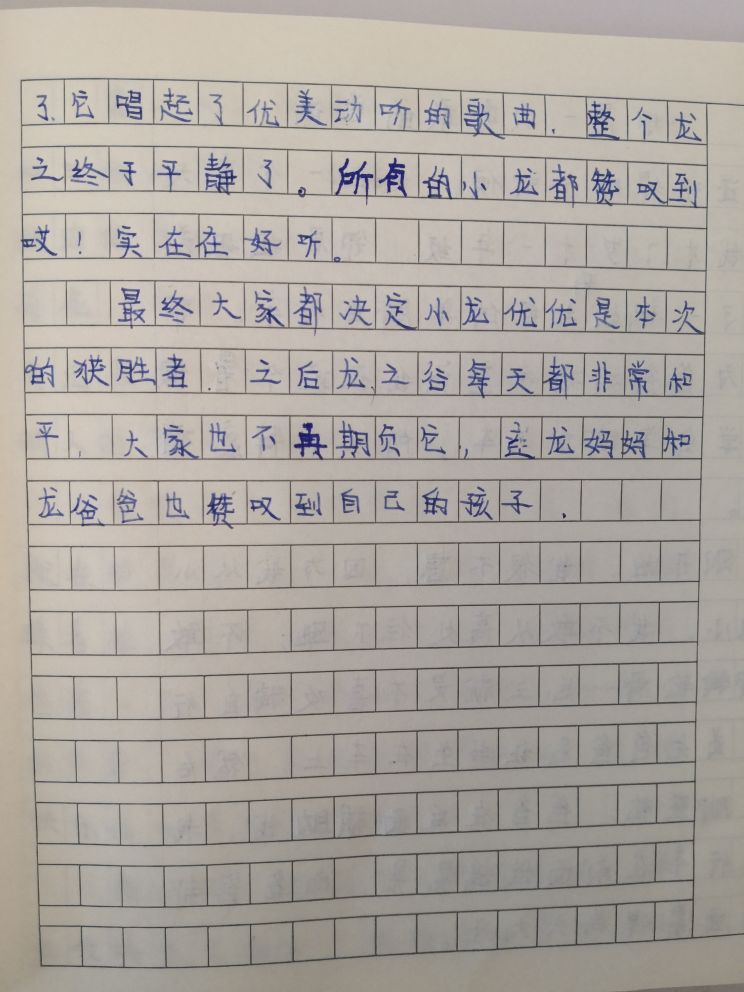 了、它唱起了优美动听的歌曲，整个龙
之终于平静了。所有的小龙都赞叹到
哎！实在在好听。
最终大家都决定小龙优优是本次
的获胜者．之后龙之谷每天都非常和
平，大家也不再期负它，连龙妈妈和
龙爸爸也赞叹到自己的孩子．